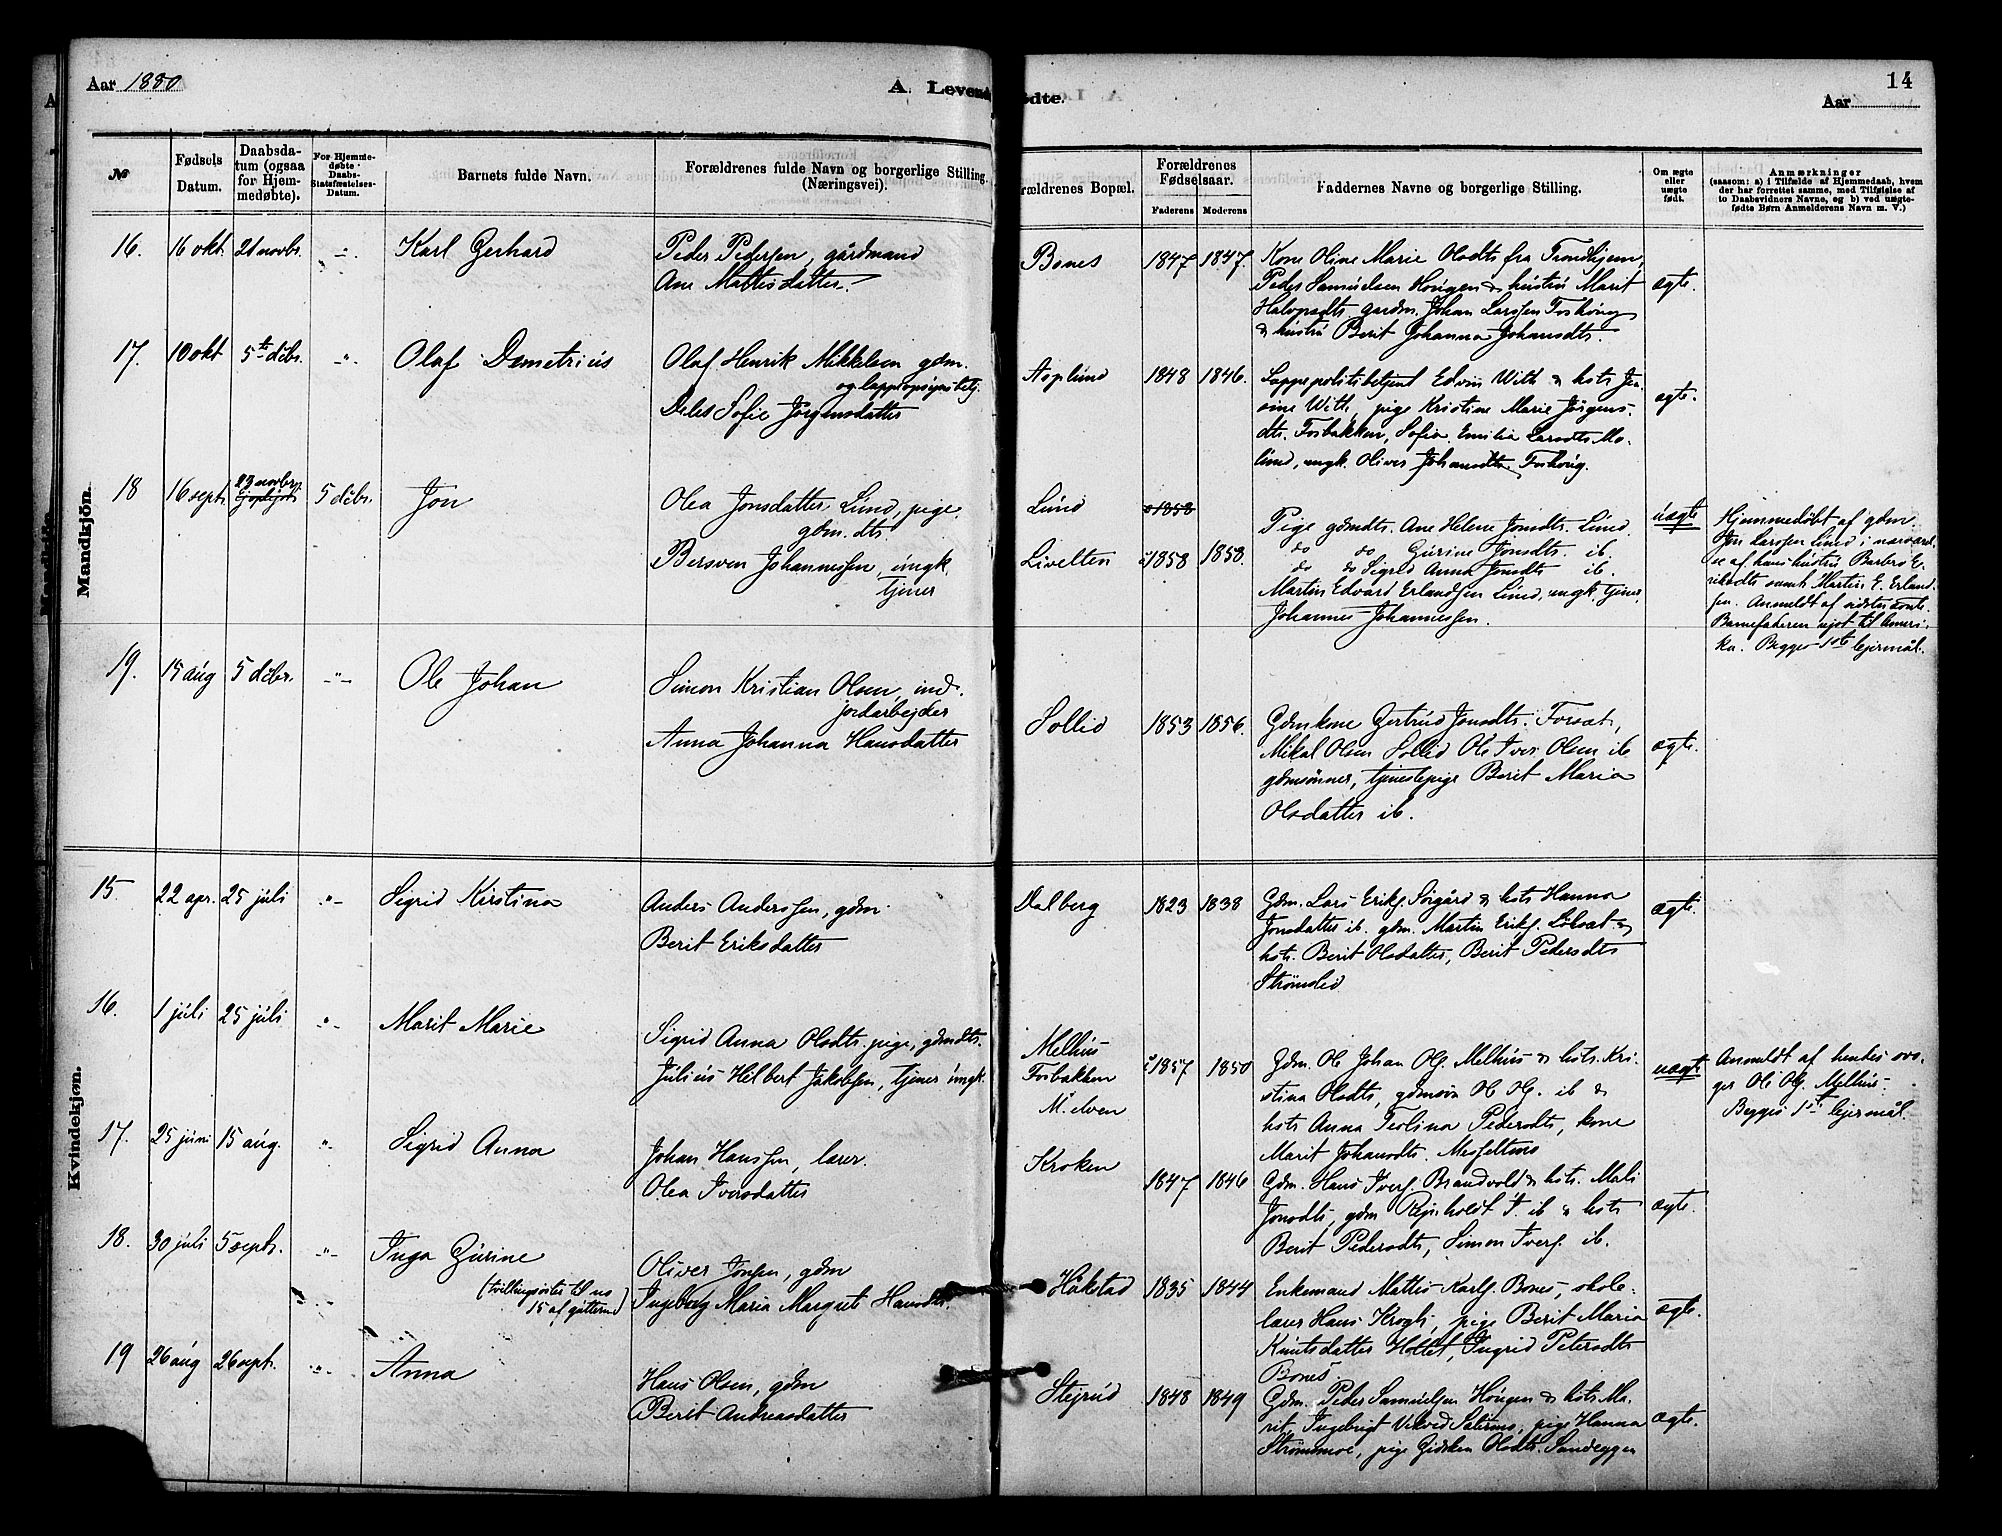 Aar 1880
A. Levendefødte.
14
Aar
№
Fødsels Datum.
Daabsdatum (ogsaa for Hjemmedøbte).
For Hjemmedøbte Daabs-Stadfæstelses-Datum.
Barnets fulde Navn.
Forældrenes fulde Navn og borgerlige Stilling. (Næringsvei).
Forældrenes Bopæl.
Forældrenes Fødselsaar.
Faderens
Moderens
Faddernes Navne og borgerlige Stilling.
Om ægte eller uægte født.
Anmærkninger
(saasom: a) i Tilfælde af Hjemmedaab, hvem
der har forrettet samme, med Tilføielse af
to Daabsvidners Navne, og b) ved uægte-
fødte Børn Anmelderens Navn m. V.)
Mandkjön.
16. 16 okt. 21 novbr. -"- Karl Gerhard
Peder Pedersen, gårdmand
Ane Mattisdatter.
Bones 1847 1847.
Kone Oline Marie Olsdtr fra Trondhjem,
Peder Samuelsen Høugen & hustru Marit
Halvorsdtr. gardm. Johan Larssen Foshoug
& hustru Berit Johanna Johansdtr.
ægte.
17. 10 okt 5te dcbr. -"- Olaf Demetrius
Olaf Henrik Mikkelsen gdm.
og lappopsynsbetj.
Deles Sofie Jörgensdatter
Asplund 1848 1846.
Lappepolitibetjent Edvin With & hstr Je-
sine With, pige Kristine Marie Jörgens-
dtr. Fosbakken, Sofie Emilia Larsdtr Mo-
lund, ungk. Oliver Johansdtr. Foshoug.
ægte.
18 16 septr. 23 novbr. 5 dcbr. Jon
Olea Jonsdatter Lund, pige,
gdm.dtr.
Bersven Johannessen, ungk.
tjener
Lund
Livelten 1858 1858.
Pige gdmdtr. Ane Helene Jonsdtr. Lund
do do Gurine Jonsdtr. ib.
do do Sigrid Anna Jonsdtr ib.
Martin Edvard Erlandsen Lund, ungk. tjener,
Johannes Johannessen.
uægte
Hjemmedøbt af gdm
Jon Larssen Lund i nærværel-
se af hans hustru Barbro E-
riksdtr samt Martin E. Erland-
sen. Anmeldt af sidstnævnte.
Barnefaderen rejst til Ameri-
ka. Begges 1ste lejermål.
19. 15 aug 5 dcbr. -"- Ole Johan
Simon Kristian Olsen, ind.
jordarbejder
Anna Johanna Hansdatter
Sollid 1853 1856.
Gdmkone Gertrud Jonsdtr. Forsæt,
Mikal Olsen Sollid Ole Iver Olsen ib
gdmsønner, tjenestepige Berit Maria
Olsdatter ib.
ægte.
Kvindekjøn.
15. 22 apr. 25 juli -"- Sigrid Kirstina
Anders Anderssen, gdm
Berit Eriksdatter
Dalberg 1823 1838
Gdm. Lars Eriks. Sörgård & hstr Hanna
Jonsdatter ib. gdm. Martin Eriks. Löbsæt &
hstr. Berit Olsdatter, Berit Pedersdtr
Strömslid
ægte.
16. 1 juli 25 juli -"- Marit Marie
Sigrid Anna Olsdtr. pige, gdmdtr.
Julius Hilbert Jakobsen, tjener ungk.
Melhus
Fosbakken
M.elven
1857 1850
Gdm. Ole Johan Ols. Melhus & hstr. Kri-
stina Olsdtr, gdmsøn Ole Ols. ib &
hstr Anna Teolina Pedersdtr, kone
Marit Johansdtr. Mosfeltmo
uægte
Anmeldt af hendes svo-
ger Ole Ols. Melhus.
Begges 1ste lejermål.
17. 25 juni 15 aug. " Sigrid Anna
Johan Hanssen, lærer.
Olea Iversdatter
Kroken 1847 1846
Gdm. Hans Ivers. Brandvold & hstr. Mali
Jonsdtr, gdm Rejnholdt I. ib & hstr
Berit Pedersdtr, Simon Ivers. ib.
ægte.
18. 30 juli 5 septr. -"- Inga Gurine
(tvillingsøster til no
15 af guttene)
Oliver Jonsen, gdm
Ingeborg Maria Margrete Hansdtr.
Håkstad 1835 1844
Enkemand Mattis Karls. Bones, skole-
lærer Hans Krogh, pige Berit Maria
Knutsdatter Hollet, Ingrid Petersdtr
Bones.
ægte.
19 26 aug 26 septr. -"- Anna
Hans Olsen, gdm
Berit Andreasdatter
Stejrud 1848 1849
Gdm. Peder Samuelsen Høugen & hstr Ma-
rit, Ingebrigt Vekved Salermo, pige Hanna
Strömsmoe, pige Gidsken Olsdtr. Sandeggen
ægte.